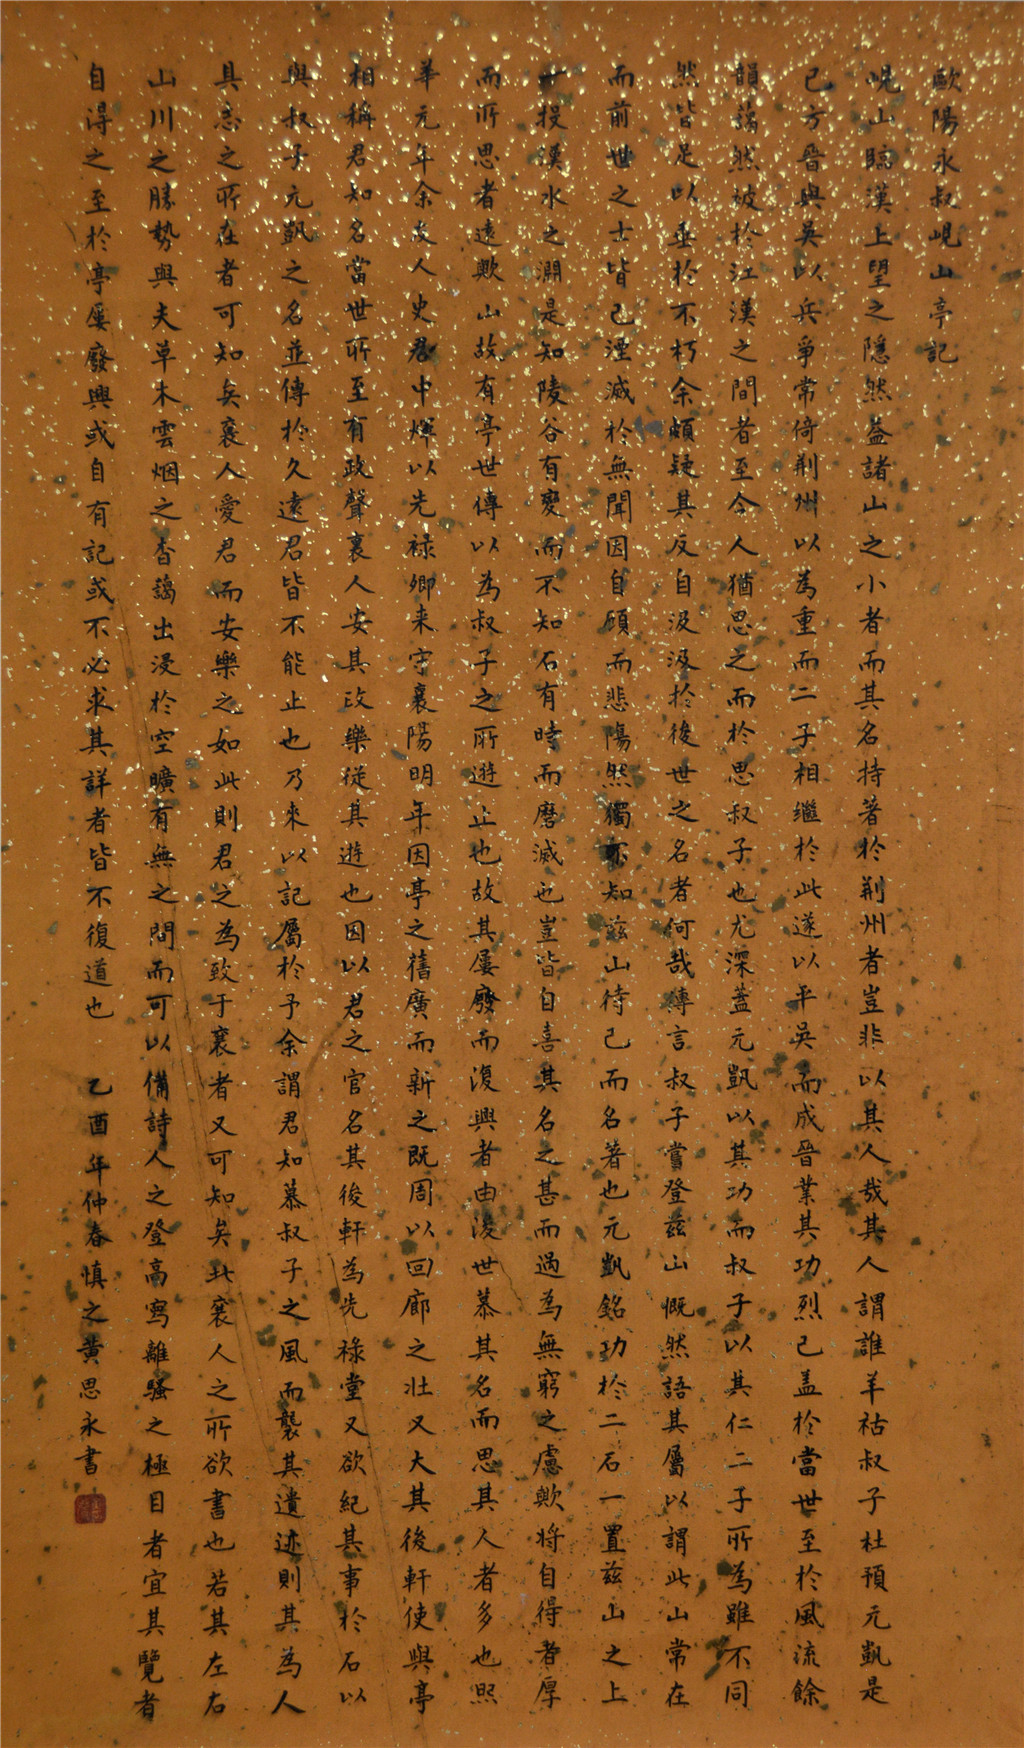 歐陽永叔峴山亭記
峴山臨漢上望之隱然蓋諸山之小者而其名持著於荆州者豈非以其人哉其人謂誰羊祜叔子杜預元凱是
已方晉與吳以兵爭常倚荆州以為重而二子相繼於此遂以平吳而成晉業其功烈已盖於當世至於風流餘
韻藹然被於江漢之間者至今人猶思之而於思叔子也尤深蓋元凱以其功而叔子以其仁二子所為雖不同
然皆足以垂於不朽余頗疑其反自汲汲於後世之名者何哉傳言叔子嘗登茲山慨然語其屬以謂此山常在
而前世之士皆已湮滅於無聞因自顧而悲傷然獨不知茲山待己而名著也元凱銘功於二石一置茲山之上
一投漢水之淵是知陵谷有變而不知石有時而磨滅也豈皆自喜其名之甚而過為無窮之慮歟將自得者厚
而所思者遠歟山故有亭世傳以為叔子之所遊止也故其屢廢而復興者由後世慕其名而思其人者多也熙
華元年余友人史君中煇以先祿卿来守襄陽明年因亭之舊廣而新之既周以回廊之壯又大其後軒使與亭
相稱君知名當世所至有政聲襄人安其政樂從其遊也因以君之官名其後軒為先祿堂又欲紀其事於石以
與叔子元凱之名並傳於久遠君皆不能止也乃來以記屬於予余謂君知慕叔子之風而襲其遺迹則其為人
具志之所在者可知矣襄人愛君而安樂之如此則君之為致于襄者又可知矣此襄人之所欲書也若其左右
山川之勝勢與夫草木雲烟之杳藹出浸於空曠有無之間而可以備詩人之登高寫離騷之極目者宜其覽者
自得之至於亭屢廢興或自有記或不必求其詳者皆不復道也 乙酉年仲春慎之黄思永書